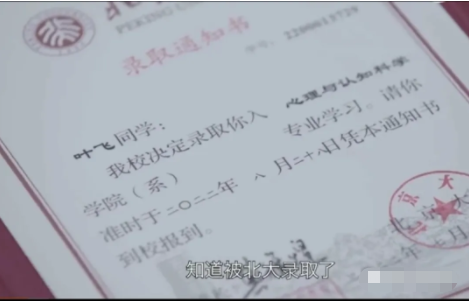 PEKING
录取通知书
学号：2200013729
叶飞同学：
我校决定录取你入 心理与认知科学
学院（系） 专业学习。请你
准时于二〇二二年 八月二十八日凭本通知书
到校报到。
知道被北大录取了